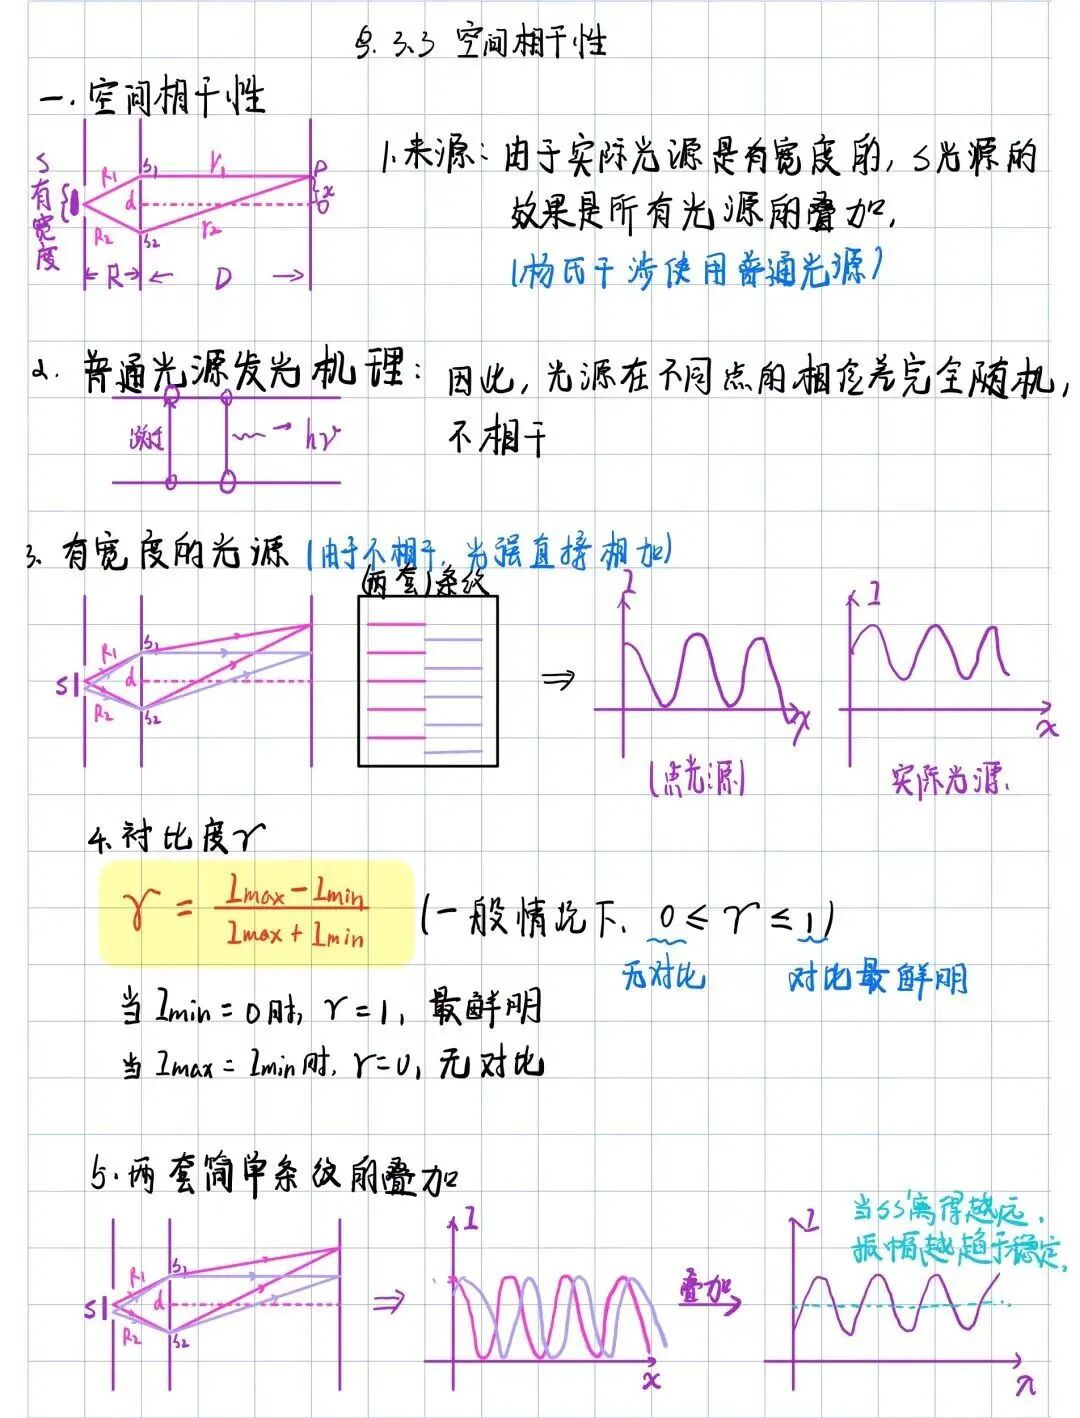 §.3.3 空间相干性
一.空间相干性
S有宽度
R1
R2
S1
S2
d
r1
r2
P
x
O
R
D
1.来源：由于实际光源是有宽度的，S光源的
效果是所有光源的叠加，
（杨氏干涉使用普通光源）
2. 普通光源发光机理：
因此，光源在不同点的相位差完全随机，
不相干
hν
3. 有宽度的光源（由于不相干，光强直接相加）
（两套）条纹
S
R1
R2
S1
S2
d
I
x
（点光源）
I
x
实际光源.
4.衬比度γ
γ = (Imax-Imin)/(Imax+Imin)
（一般情况下，0≤γ≤1）
无对比
对比最鲜明
当Imin=0时，γ=1，最鲜明
当Imax=Imin时，γ=0，无对比
5.两套简单条纹的叠加
S
R1
R2
S1
S2
d
I
x
叠加
当SS'离得越远，
振幅越趋于稳定,
I
x